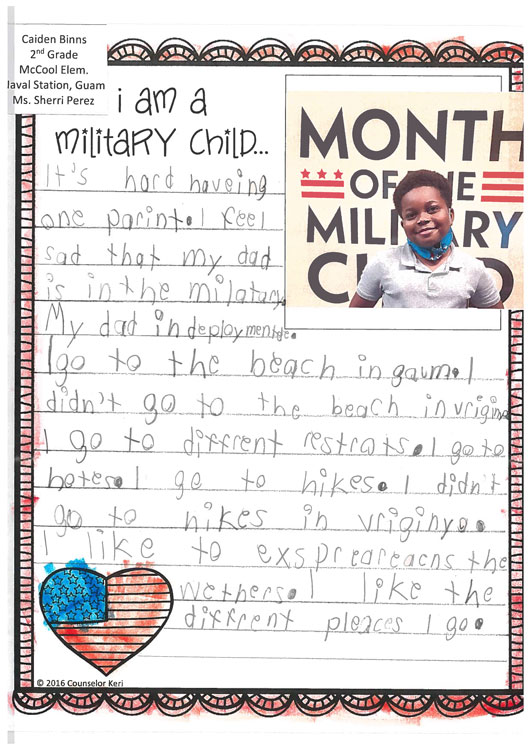 Caiden Binns
2nd Grade
McCool Elem.
laval Station, Guam
Ms. Sherri Perez
i am a
military child...
MONTH
OF THE
MILITARY
CHILD
It's hard haveing
one parint. I feel
sad that my dad
is in the milatary.
My dad in deployment.
I go to the beach in gaum. I
didn't go to the beach in vrigin
I go to diffrent restrats. I go to
hotes. I go to hikes. I didn't
go to hikes in vriginyo.
I like to exspreareacns the
wethers. I like the
diffrent pleaces I go.
© 2016 Counselor Keri